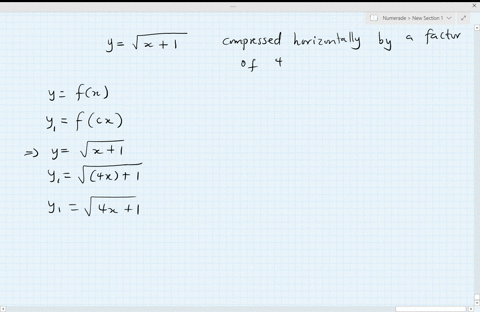 Numerade > New Section 1
y = √(x + 1) compressed horizontally by a factor
of 4
y = f(x)
y₁ = f(cx)
=> y = √(x + 1)
y₁ = √((4x) + 1)
y₁ = √(4x + 1)